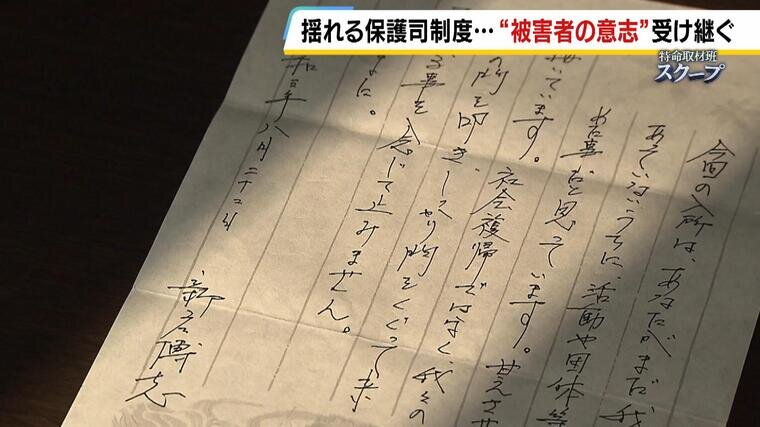 揺れる保護司制度…“被害者の意志”受け継ぐ
特命取材班
スクープ
今回の入所は、あなたがまだ我
ていないうちに、活動や団体等
た事だと見ています。甘えさせ
いています。社会復帰ではなく、我々の
の門を叩き、しっかり門をくぐって来
る事を念じて止みません。
に。
八月二十二日
新庄博志